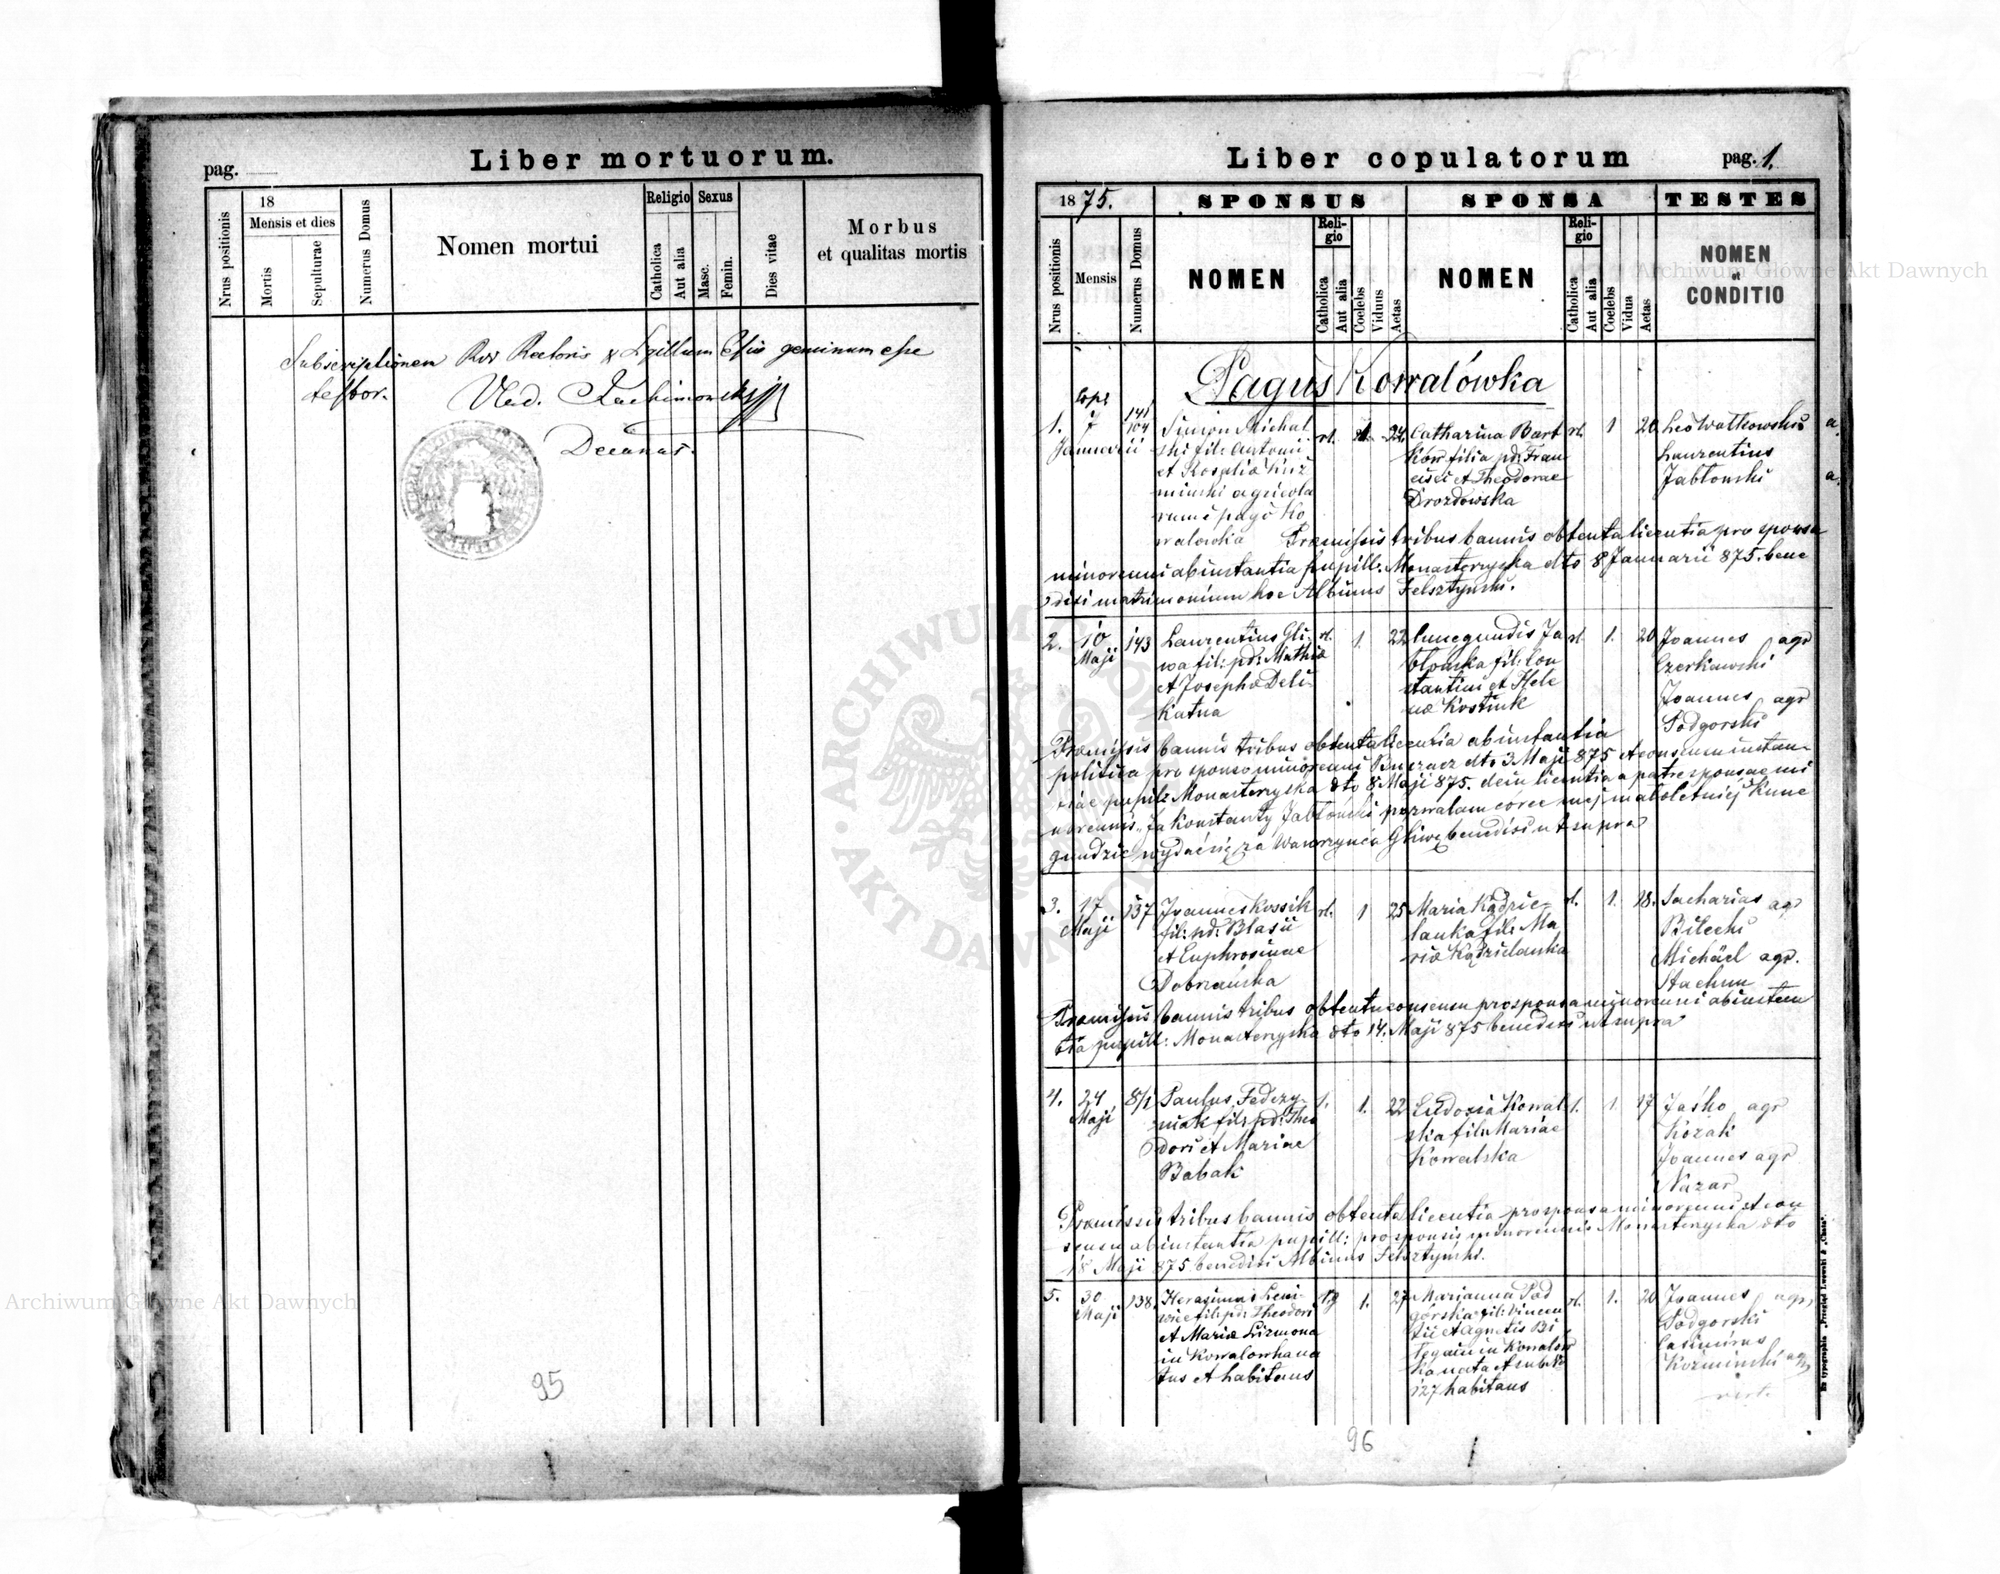 pag.
Liber mortuorum.
Nrus positionis
18
Mensis et dies
Mortis
Sepulturae
Numerus Domus
Nomen mortui
Religio
Catholica
Aut alia
Sexus
Masc.
Femin.
Dies vitae
Morbus
et qualitas mortis
Subscriptionem Rdi Rectoris & Sigillum
testor.
Decanus.
95
Liber copulatorum
pag. 1.
1875.
SPONSUS
SPONSA
TESTES
Nrus positionis
Mensis
Numerus Domus
NOMEN
Religio
Catholica
Aut alia
Coelebs
Viduus
Aetas
NOMEN
Religio
Catholica
Aut alia
Coelebs
Vidua
Aetas
NOMEN
et
CONDITIO
Pagus Kowalówka
1.
Januarii
141
104
Simon Michal
ski fil: Antonii
et Rosaliæ Kuź
minski agricola
rum e pago Ko
walowka
rl.
24
Catharina Bart
ków filia pd: Fran
cisci et Theodorae
Drozdowska
rl. 1 20
Leo Watkowski a.
Laurentius
Jabłonski a.
Præmissis tribus bannis obtenta licentia pro sponsa
minorenni ab instantia pupill. Monasterzyska dto 8 Januarii 875. bene
dixi matrimonium hoc Albinus Felsztyński.
2. 10
Maji
143
Laurentius Gli
wa fil: pd: Mathiæ
et Josepha Deli
katna
rl. 1. 22
Cunegundis Ja
błońska fil: Con
stantini et Hele
næ Kostiuk
rl. 1. 20
Joannes agr
Czerkawski
Joannes agr
Podgorski
Præmissis bannis tribus obtenta licentia ab instantia
politica pro sponso minorenni Buczacz dto 3 Maji 875 et consensu instan
tiae pupill: Monasterzyska dto 8 Maji 875. dein licentia a patre sponsae mi
norennis „Ja Konstanty Jabłoński pozwalam córce mej małoletniej Kune
gundzie wydać się za Wawrzyńca Gliwę benedixi ut supra
3. 17
Maji
137
Joannes Kossik
fil: pd: Blasii
et Euphrosinae
Dobrzańska
rl. 1 25
Maria Kądzie
lanka fil: Ma
riæ Kądzielanka
rl. 1. 18.
Zacharias agr
Bilecki
Michäel agr.
Stachun
Præmissis bannis tribus obtentu consensu pro sponsa minorenni ab instan
tia pupill: Monasterzyska dto 14. Maji 875 benedixi ut supra
4. 24
Maji
8/1
Paulus Fedczy
niak fil: pd: Theo
dori et Mariae
Babak
1. 1. 22
Eudoxia Kowal
ska fil: Mariae
Kowalska
1. 1. 17
Jaśko agr
Kozak
Joannes agr
Nazar
Præmissis tribus bannis obtenta licentia pro sponsa minorenni et con
sensu ab instantia pupill: pro sponsis minorennis Monasterzyska dto
18 Maji 875 benedixi Albinus Felsztyński.
5. 30
Maji
138.
fil: pd: Theodori
et Mariæ
in Kowalowka na
tus et habitans
1. 27
Marianna Pod
górska fil: Vincen
tii et Agnetis Bi
in Kowalow
ka nata et sub No
127 habitans
rl. 1. 20
Joannes agr,
Podgorski
Casimirus
Kozminski agr,
vert.
96
Ex typographia „Przegląd Lwowski & „Chata”.
Archiwum Główne Akt Dawnych
Archiwum Główne Akt Dawnych
ARCHIWUM GŁÓWNE
AKT DAWNYCH